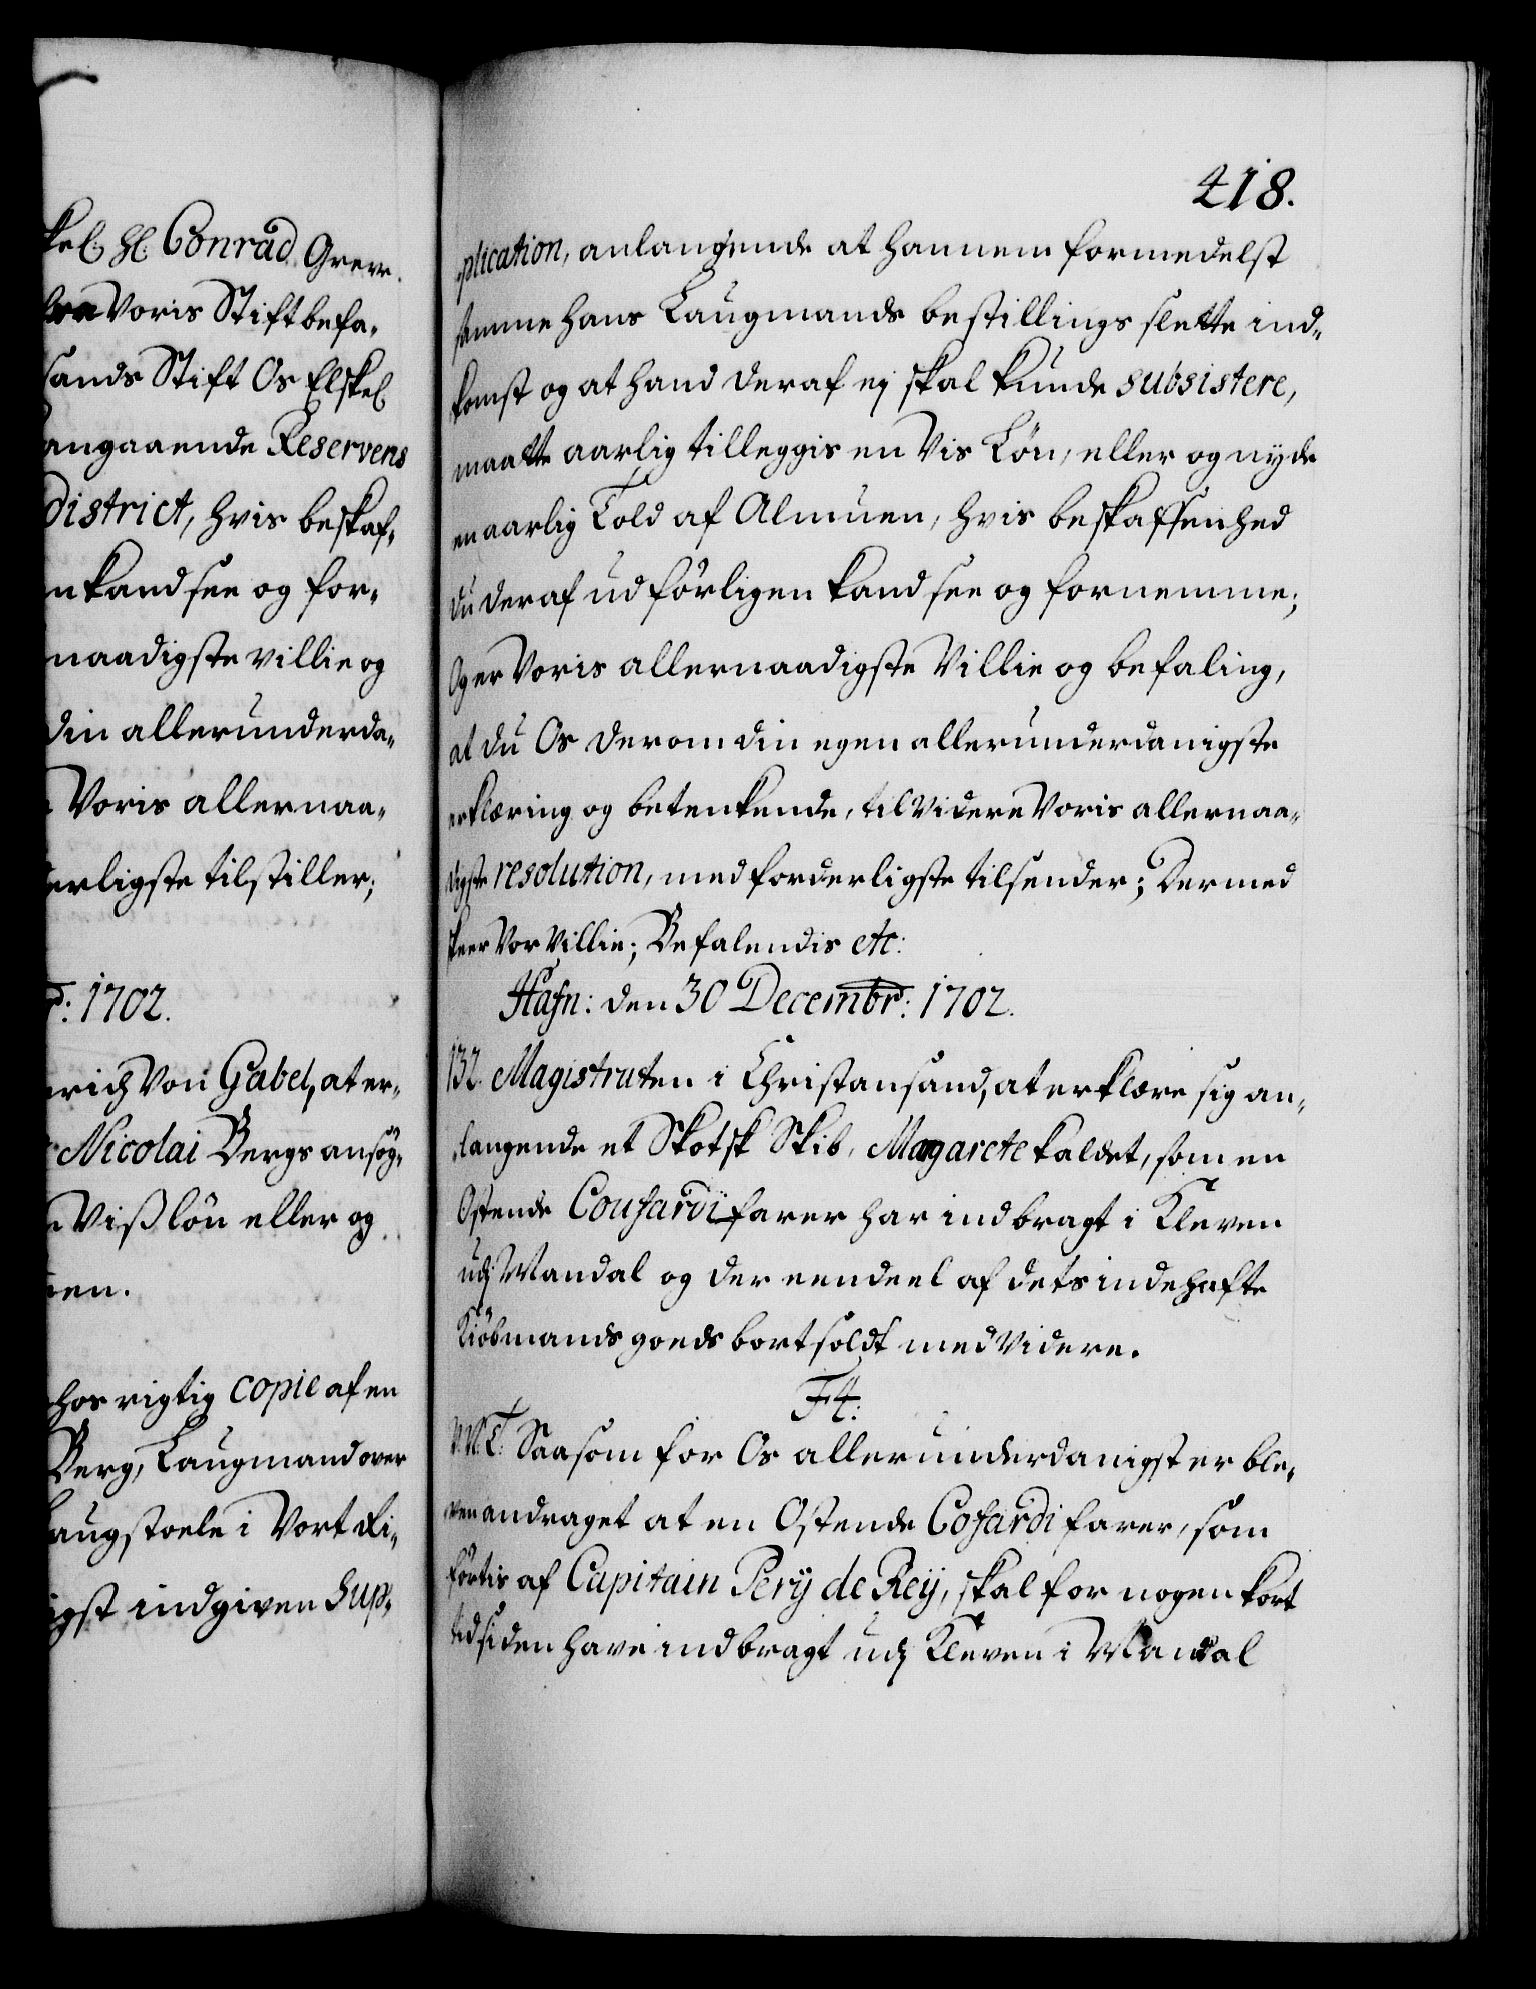 kel. Hl. Conrad Grev.
Voris Stiftbefa-
sands Stift Os Elskel.
angaaende Reservens
district, hvis beskaf-
n kand see og for-
naadigste villie og
din allerunderda-
Voris allernaa-
erligste tilstiller;
: 1702.
rich von Gabel, at er-
Nicolai Bergs ansøg-
Viss løn eller og
en.
hos rigtig copie af en
Berg, Laugmand over
augstoele i Vort Ri-
igst indgiven Sup-
418.
plication, anlangende at hannem formedelst
samme hans Laugmands bestillings slette ind-
komst og at hand deraf ej skal kunde subsistere,
maatte aarlig tilleggis en Vis Løn, eller og nyde
en aarlig Told af Almuen, hvis beskaffenhed
du deraf udførligen kand see og fornemme;
Og er Voris allernaadigste Villie og befaling,
at du Os derom din egen allerunderdanigste
erklæring og betenkende, til videre Voris allernaa-
digste resolution, med forderligste tilsender; Dermed
skeer Vor Villie; Befalendis etc:
Hafn: den 30 Decembr: 1702.
132. Magistraten i Christansand, at erklære sig an-
langende et Skotsk Skib, Margarete kaldet, som en
Ostende Coufardi farer har indbragt i Kleven
udj Mandal og der eendeel af dets indehafte
Kiøbmands goeds bortsoldt med Videre.
F4:
V. N. T: Saasom for Os allerunderdanigst er ble-
ven andraget at en Ostende Cofardi farer, som
førtis af Capitain Pery de Rey, skal for nogen kort
tid siden have indbragt udj Kleven i Mandal